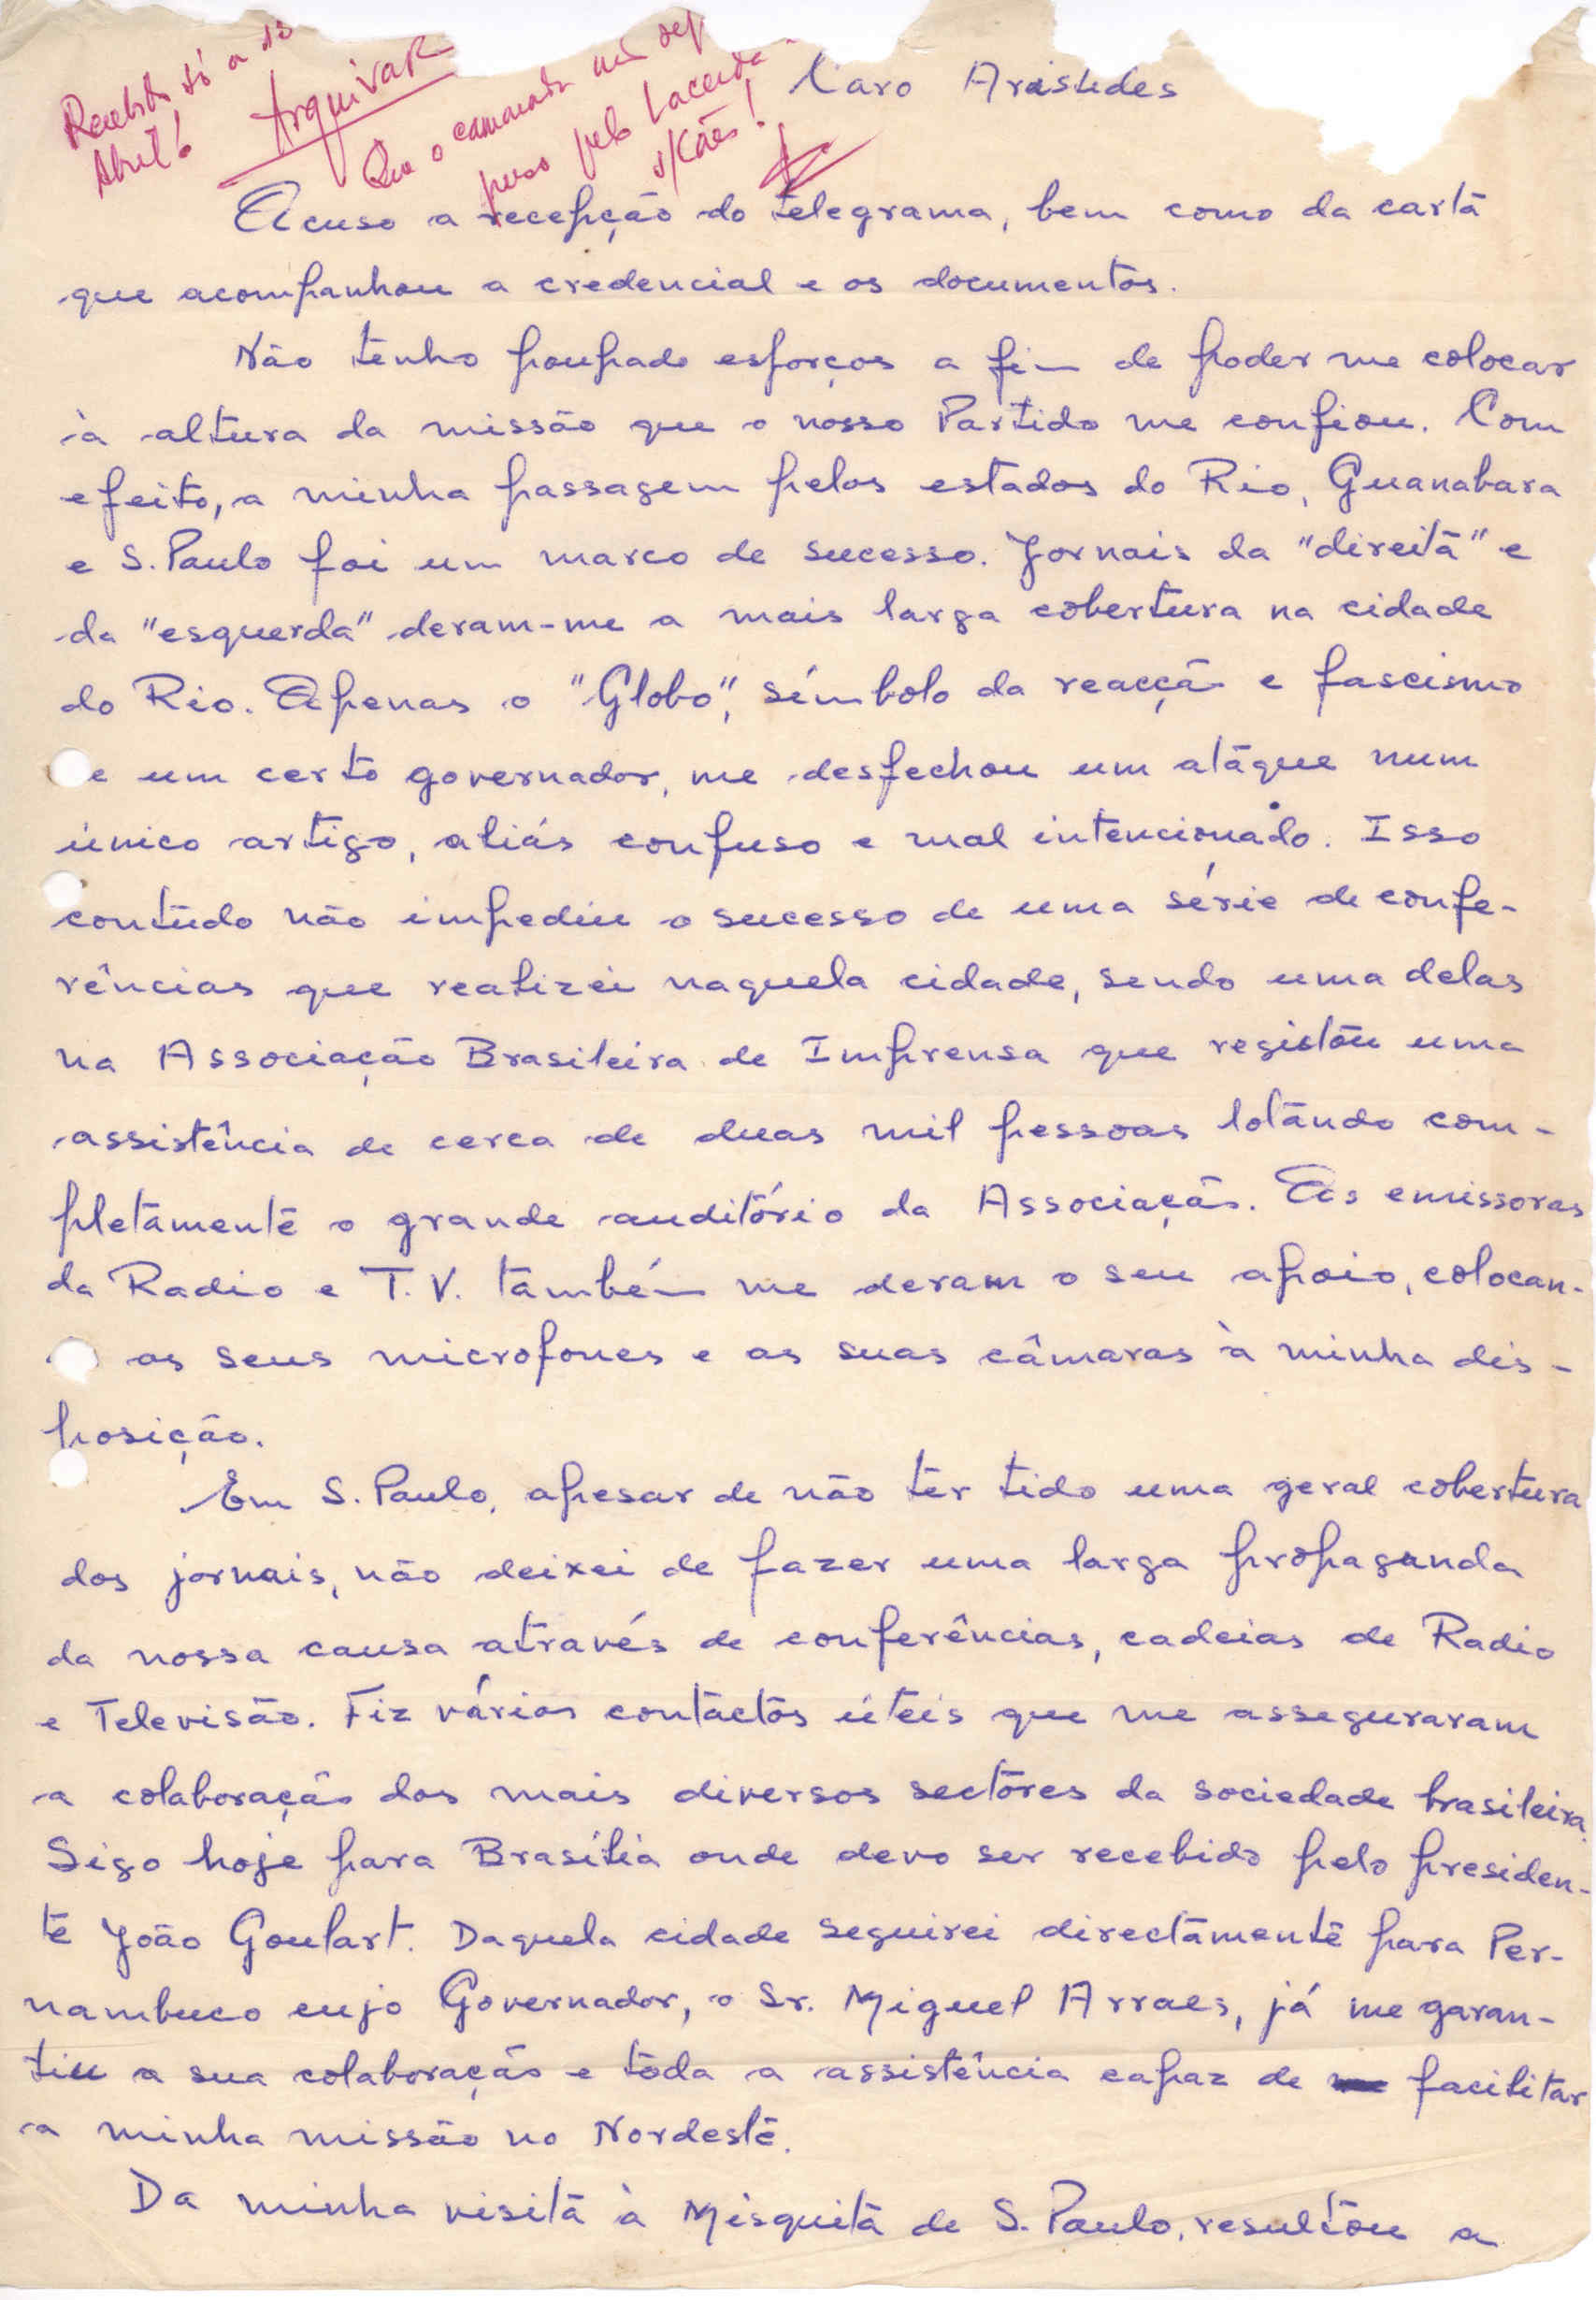 Recebida só a
Abril
Arquivar
Que o camarada
preso pelo Lacerda
Caro Aristides
Acuso a recepção do telegrama, bem como da carta
que acompanhou a credencial e os documentos.
Não tenho poupado esforços a fim de poder me colocar
à altura da missão que o nosso Partido me confiou. Com
efeito, a minha passagem pelos estados do Rio, Guanabara
e S. Paulo foi um marco de sucesso. Jornais da "direita" e
da "esquerda" deram-me a mais larga cobertura na cidade
do Rio. Apenas o "Globo", símbolo da reacção e fascismo
e um certo governador, me desfechou um ataque num
único artigo, aliás confuso e mal intencionado. Isso
contudo não impediu o sucesso de uma série de confe-
rências que realizei naquela cidade, sendo uma delas
na Associação Brasileira de Imprensa que registou uma
assistência de cerca de duas mil pessoas lotando com-
pletamente o grande auditório da Associação. As emissoras
da Radio e T.V. também me deram o seu apoio, colocan-
os seus microfones e as suas câmaras à minha dis-
posição.
Em S. Paulo, apesar de não ter tido uma geral cobertura
dos jornais, não deixei de fazer uma larga propaganda
da nossa causa através de conferências, cadeias de Radio
e Televisão. Fiz vários contactos úteis que me asseguraram
a colaboração dos mais diversos sectores da sociedade brasileira.
Sigo hoje para Brasília onde devo ser recebido pelo presiden-
te João Goulart. Daquela cidade seguirei directamente para Per-
nambuco cujo Governador, o Sr. Miguel Arraes, já me garan-
tiu a sua colaboração e toda a assistência capaz de facilitar
a minha missão no Nordeste.
Da minha visita à Mesquita de S. Paulo, resultou a